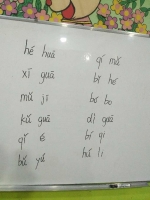 hé huā
xī guā
mǔ jī
kǔ guā
qǐ é
bù yú
qí mǎ
bǐ hé
bó bo
dì guā
bí qi
hú li